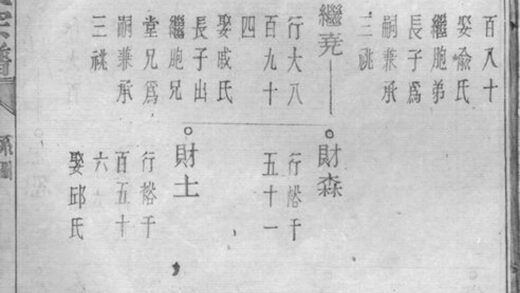 百八十
娶喩氏
繼胞弟
長子爲
嗣兼承
三祧
繼堯
行大八
百九十
四
娶戚氏
長子出
繼胞兄
堂兄爲
嗣兼承
三祧
財森
行裕千
五十一
財土
行裕千
百五十
六
娶邱氏
宗譜
系圖